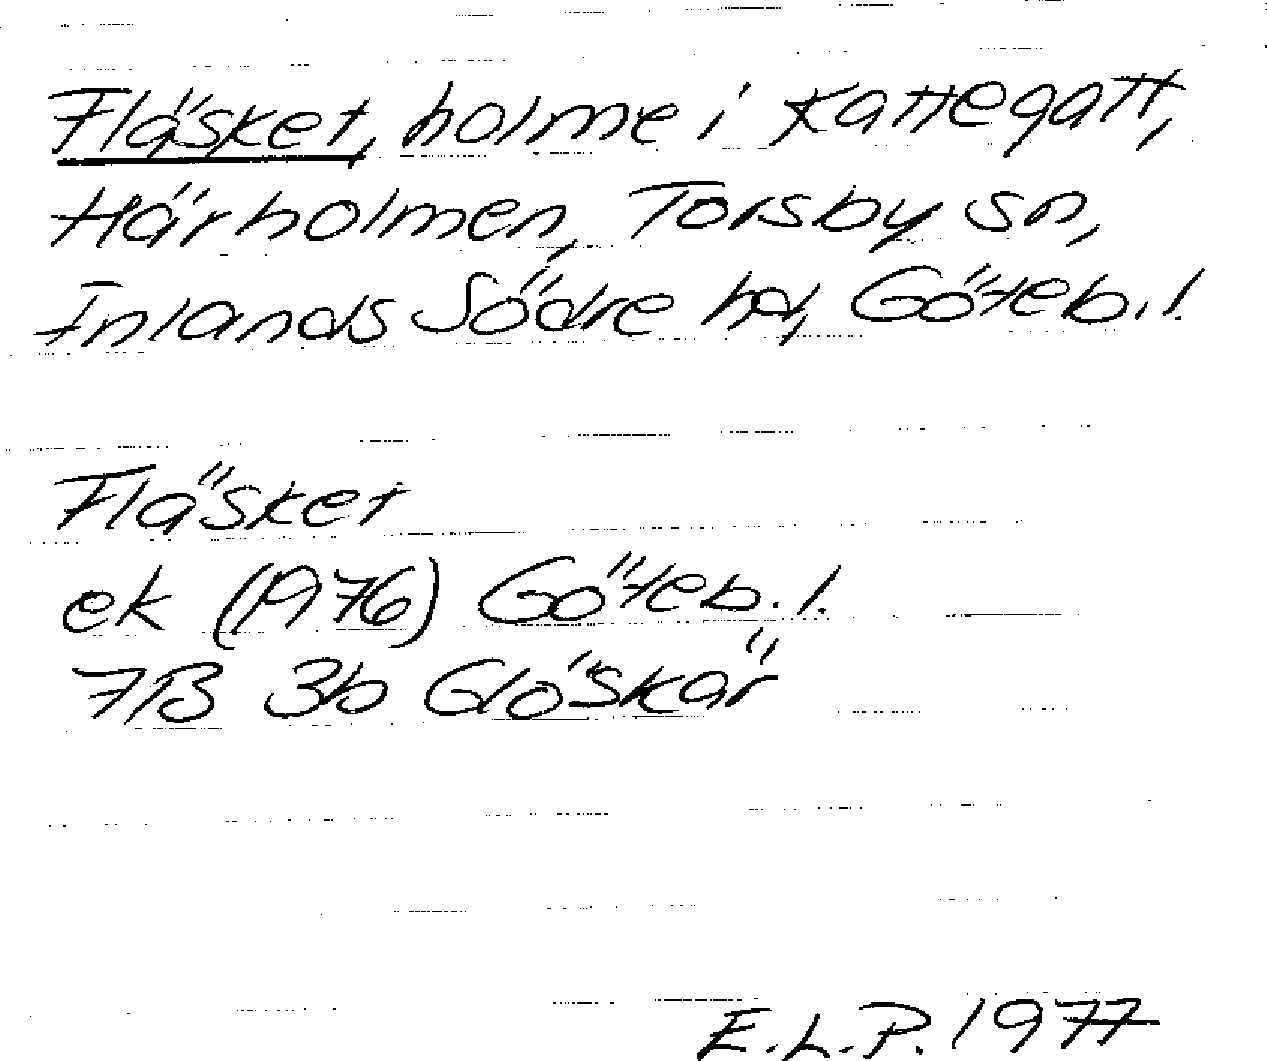 Fläsket, holme i Kattegatt,
Härholmen, Torsby sn,
Inlands Södre hd, Göteb.l.
Fläsket
ek (1976) Göteb.l.
7B 3b Glöskär
E.L.P. 1977